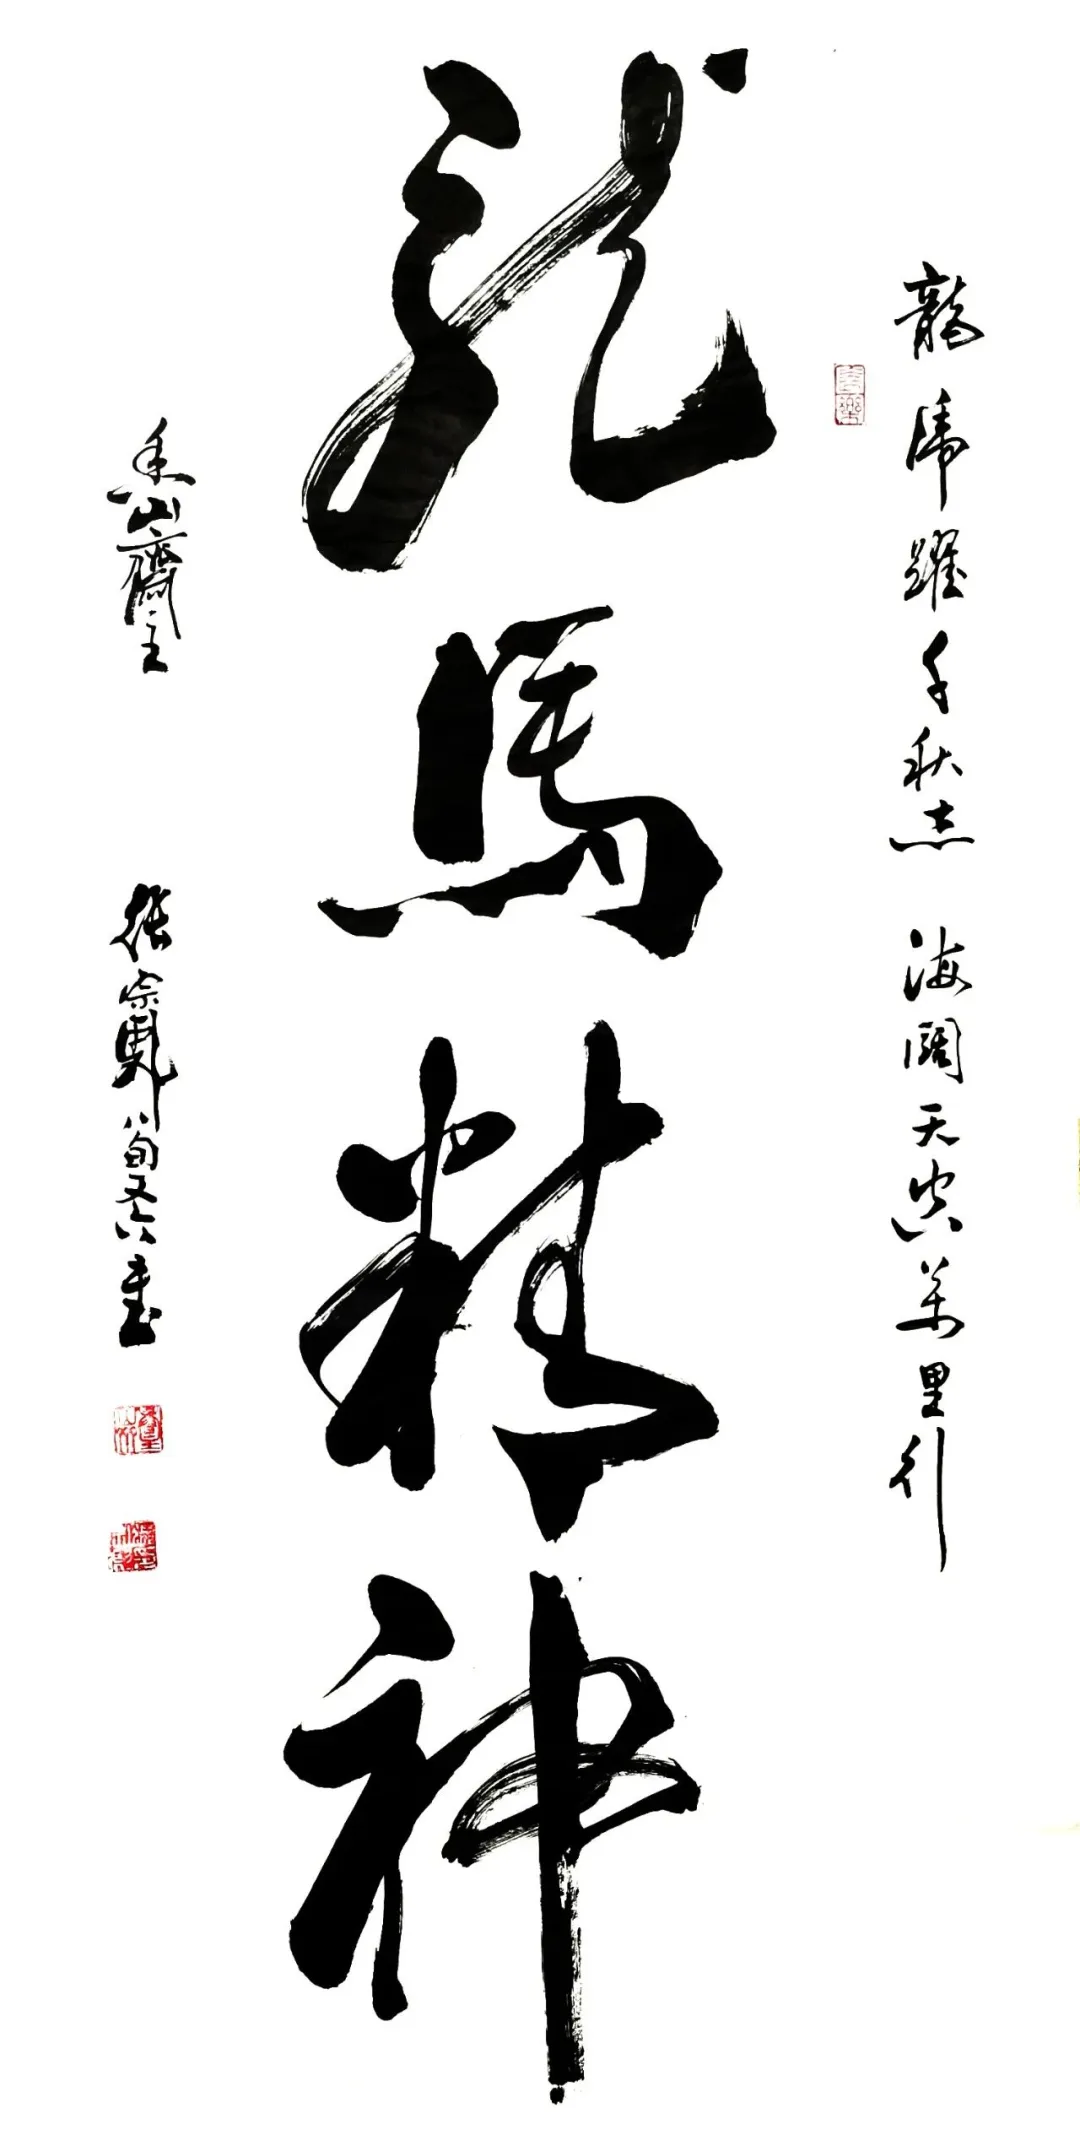 龍虎躍千秋志 海闊天空萬里行
龍馬精神
香山齋主 張宗 八旬又六書